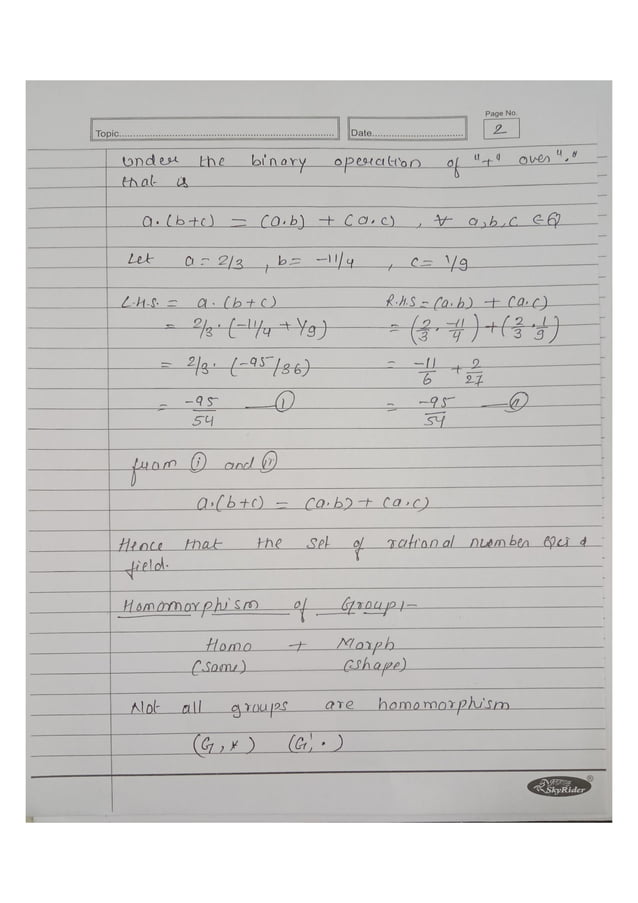 Page No.
Topic.......... Date.......... 2
Under the binary operation of "+" over "."
that is
a.(b+c) = (a.b) + (a.c) , ∀ a,b,c ∈ Q
Let a = 2/3 , b = -11/4 , c = 1/9
L.H.S. = a.(b+c) R.H.S = (a.b) + (a.c)
= 2/3 . (-11/4 + 1/9) = (2/3 . -11/4) + (2/3 . 1/9)
= 2/3 . (-95/36) = -11/6 + 2/27
= -95/54 — (i) = -95/54 — (ii)
from (i) and (ii)
a.(b+c) = (a.b) + (a.c)
Hence that the set of rational number Q is a
field.
Homomorphism of Group:-
Homo + Morph
(Same) (Shape)
Not all groups are homomorphism
(G, *) (G', .)
SkyRider ®